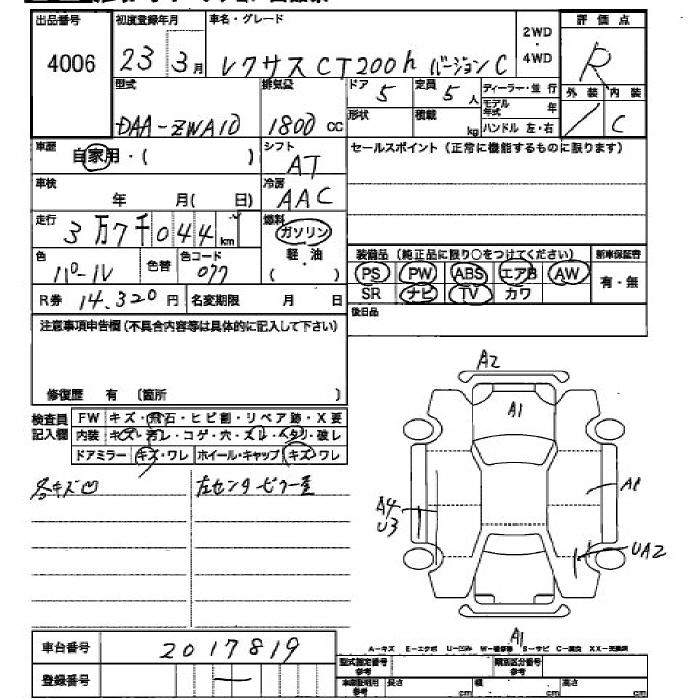 出品番号 初度登録年月 車名・グレード 2WD ・ 4WD 評価点
4006 23年 3月 レクサス CT200h バージョンC R
型式 排気量 ドア 5 定員 5人 ディーラー・並行 外装 内装
DAA-ZWA10 1800cc 形状 積載 kg モデル年式 年 / C
ハンドル 左・右
車歴 自家用・( ) シフト AT セールスポイント(正常に機能するものに限ります)
車検 年 月( 日) 冷房 AAC
走行 3万7千044km 燃料 ガソリン
軽・油
( )
装備品(純正品に限り○をつけてください) 新車保証書
色 パール 色替 色コード 077 PS PW ABS エアB AW 有・無
SR ナビ TV カワ
R券 14.320円 名変期限 月 日 後日品
注意事項申告欄(不具合内容等は具体的に記入して下さい)
修復歴 有 〔箇所 〕
検査員記入欄 FW キズ・飛石・ヒビ割・リペア跡・X要
内装 キズ・汚レ・コゲ・穴・スレ・ヘタリ・破レ
ドアミラー キズ・ワレ ホイール・キャップ キズ・ワレ
各キズ凹 左センタピラー歪
A2
A1
A4
U3
A1
UA2
A1
車台番号 2017819
A-キズ E-エクボ U-凹ミ W-補修跡 S-サビ C-腐食 XX-交換済
登録番号 型式指定番号 参考 類別区分番号 参考
車庫証明用 参考 長さ cm 幅 cm 高さ cm